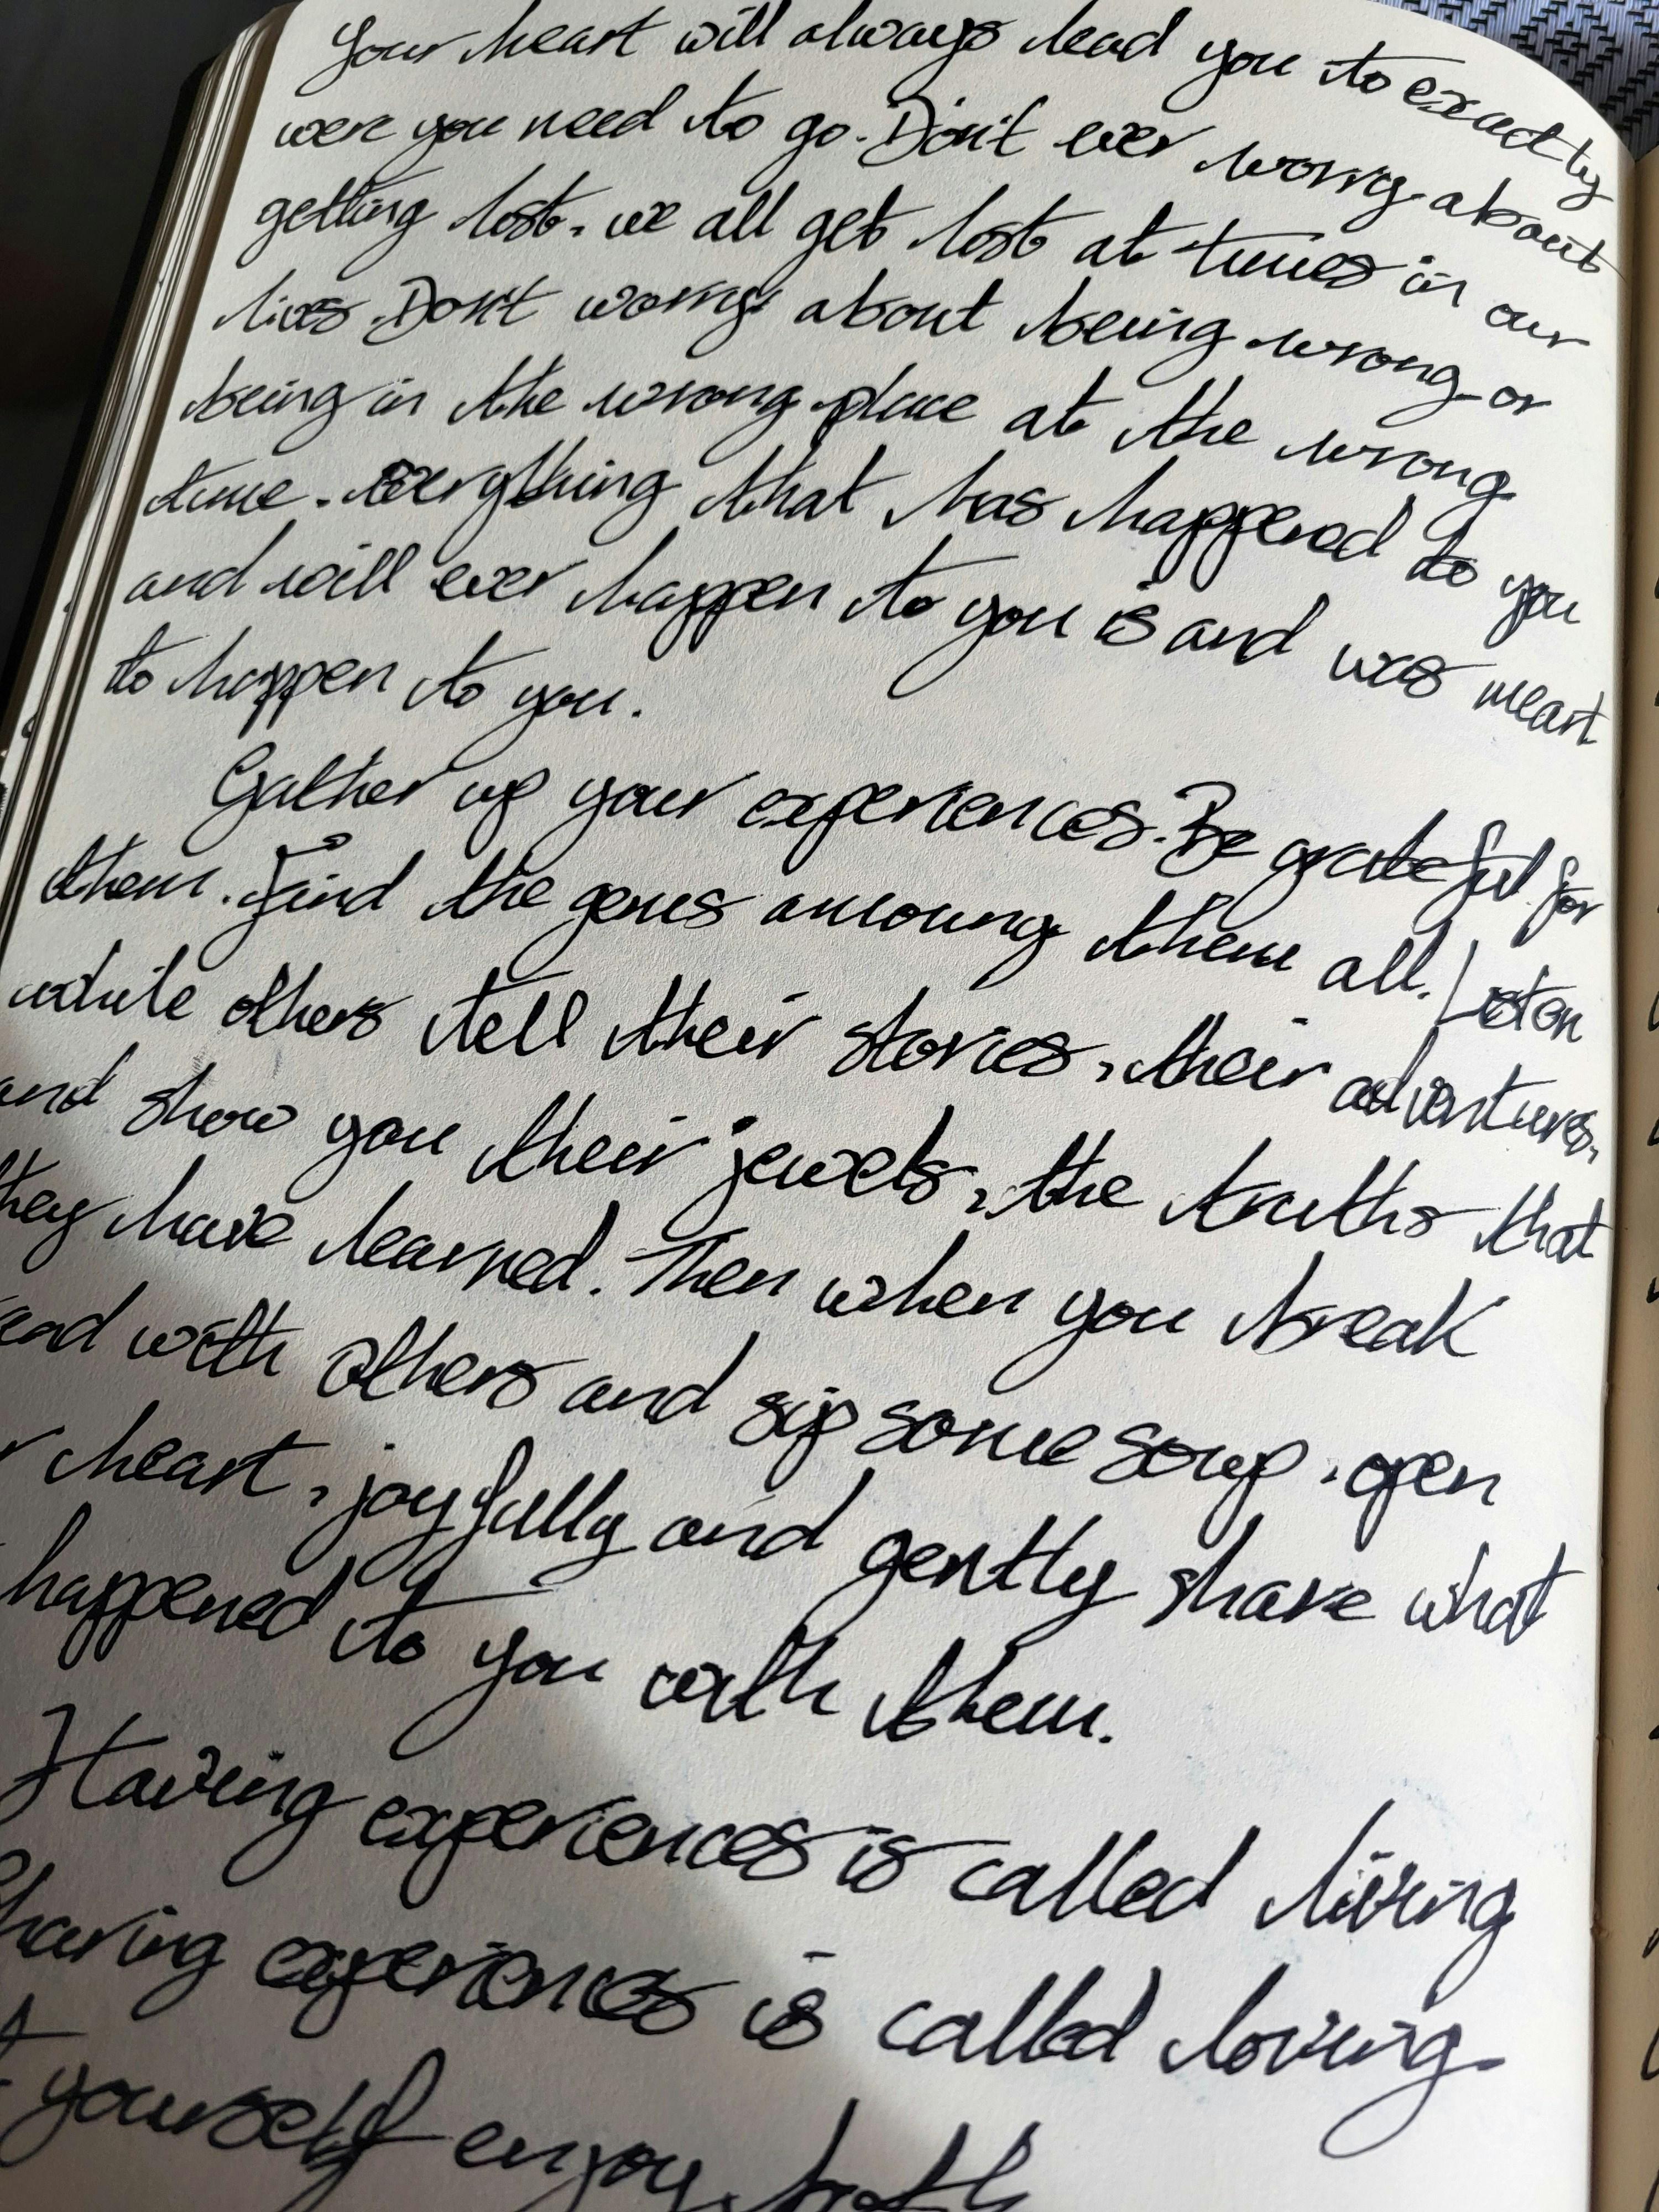 Your heart will always lead you to exactly
were you need to go. Don't ever worry about
getting lost, we all get lost at times in our
lives. Don't worry about being wrong or
being in the wrong place at the wrong
time. Everything that has happened to you
and will ever happen to you is and was meant
to happen to you.
Gather up your experiences. Be grateful for
them. Find the gems amoung them all. Listen
while others tell their stories, their adventures,
and show you their jewels, the truths that
they have learned. Then when you break
ead with others and sip some soup, open
r heart, joyfully and gently share what
happened to you with them.
Having experiences is called living
haring experiences is called loving.
t yourself enjoy both